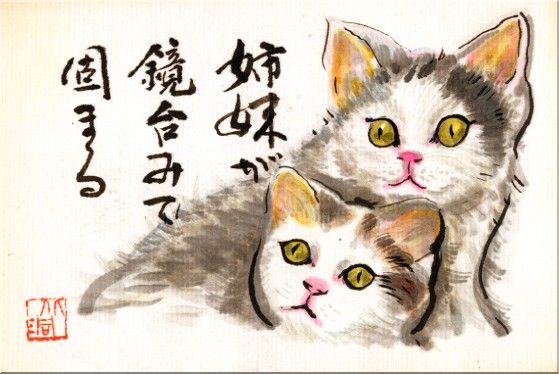 姉妹が
鏡台みて
固まる